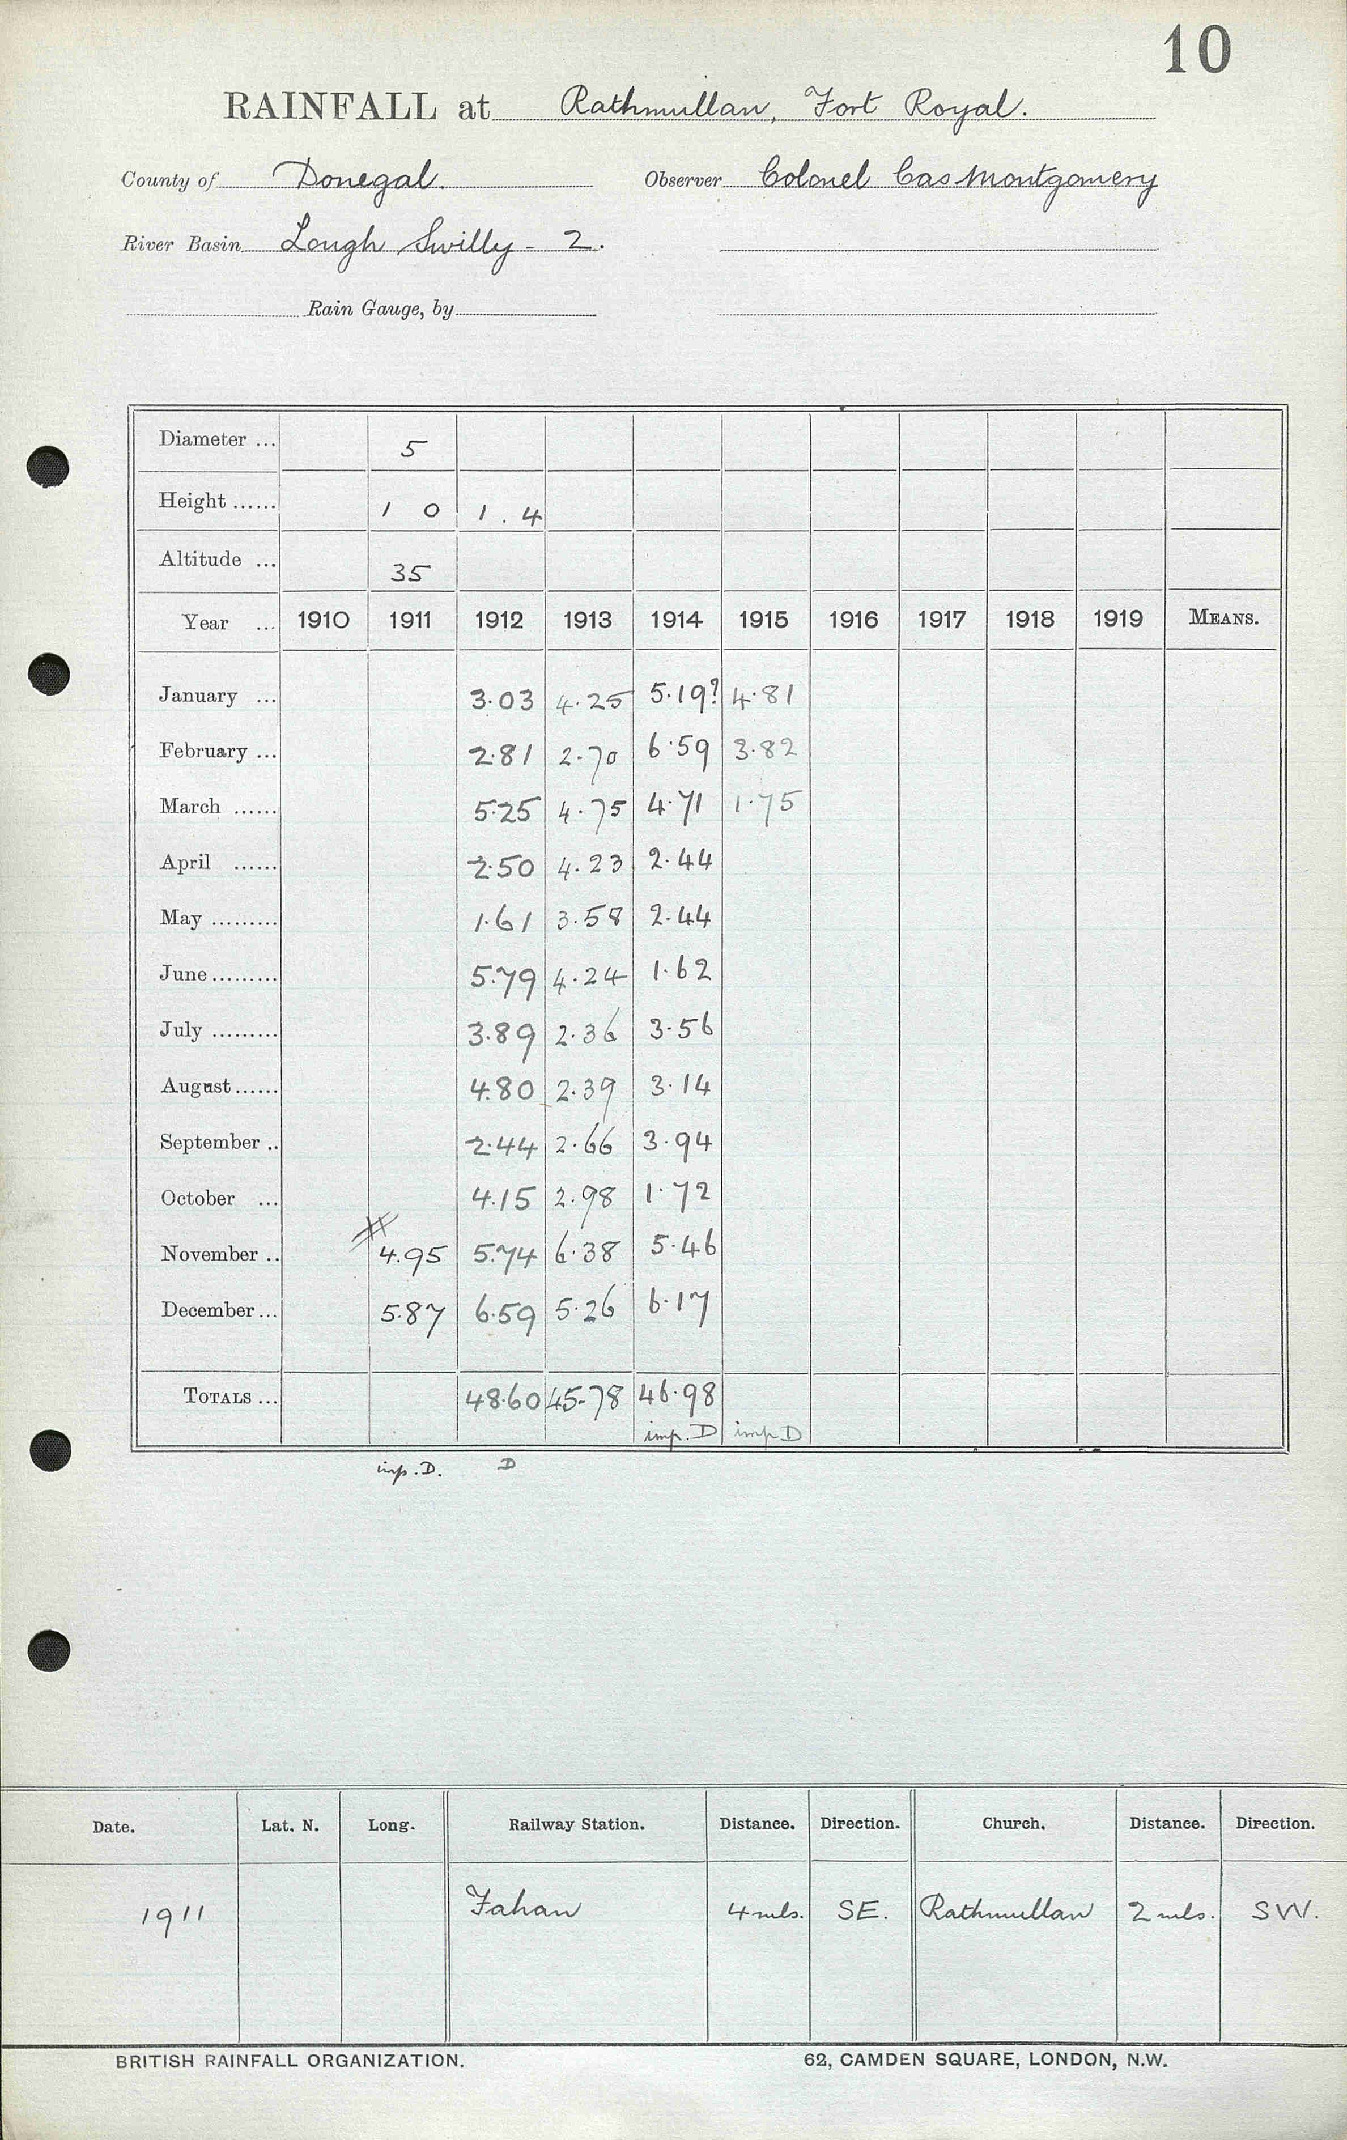 10
RAINFALL at Rathmullan, Fort Royal.
County of Donegal. Observer Colonel Cas Montgomery
River Basin Lough Swilly - 2.
Rain Gauge, by
Diameter ... 5
Height ...... 1 0 1.4
Altitude ... 35
Year ... 1910 1911 1912 1913 1914 1915 1916 1917 1918 1919 MEANS.
January ... 3.03 4.25 5.19? 4.81
February ... 2.81 2.70 6.59 3.82
March ...... 5.25 4.75 4.71 1.75
April ...... 2.50 4.23 2.44
May ......... 1.61 3.58 2.44
June ......... 5.79 4.24 1.62
July ......... 3.89 2.36 3.56
August ...... 4.80 2.39 3.14
September .. 2.44 2.66 3.94
October ... 4.15 2.98 1.72
November .. 4.95 5.74 6.38 5.46
December ... 5.87 6.59 5.26 6.17
TOTALS ... 48.60 45.78 46.98
imp. D imp D
imp. D. D
Date. Lat. N. Long. Railway Station. Distance. Direction. Church. Distance. Direction.
1911 Fahan 4 mls. SE. Rathmullan 2 mls. SW.
BRITISH RAINFALL ORGANIZATION. 62, CAMDEN SQUARE, LONDON, N.W.